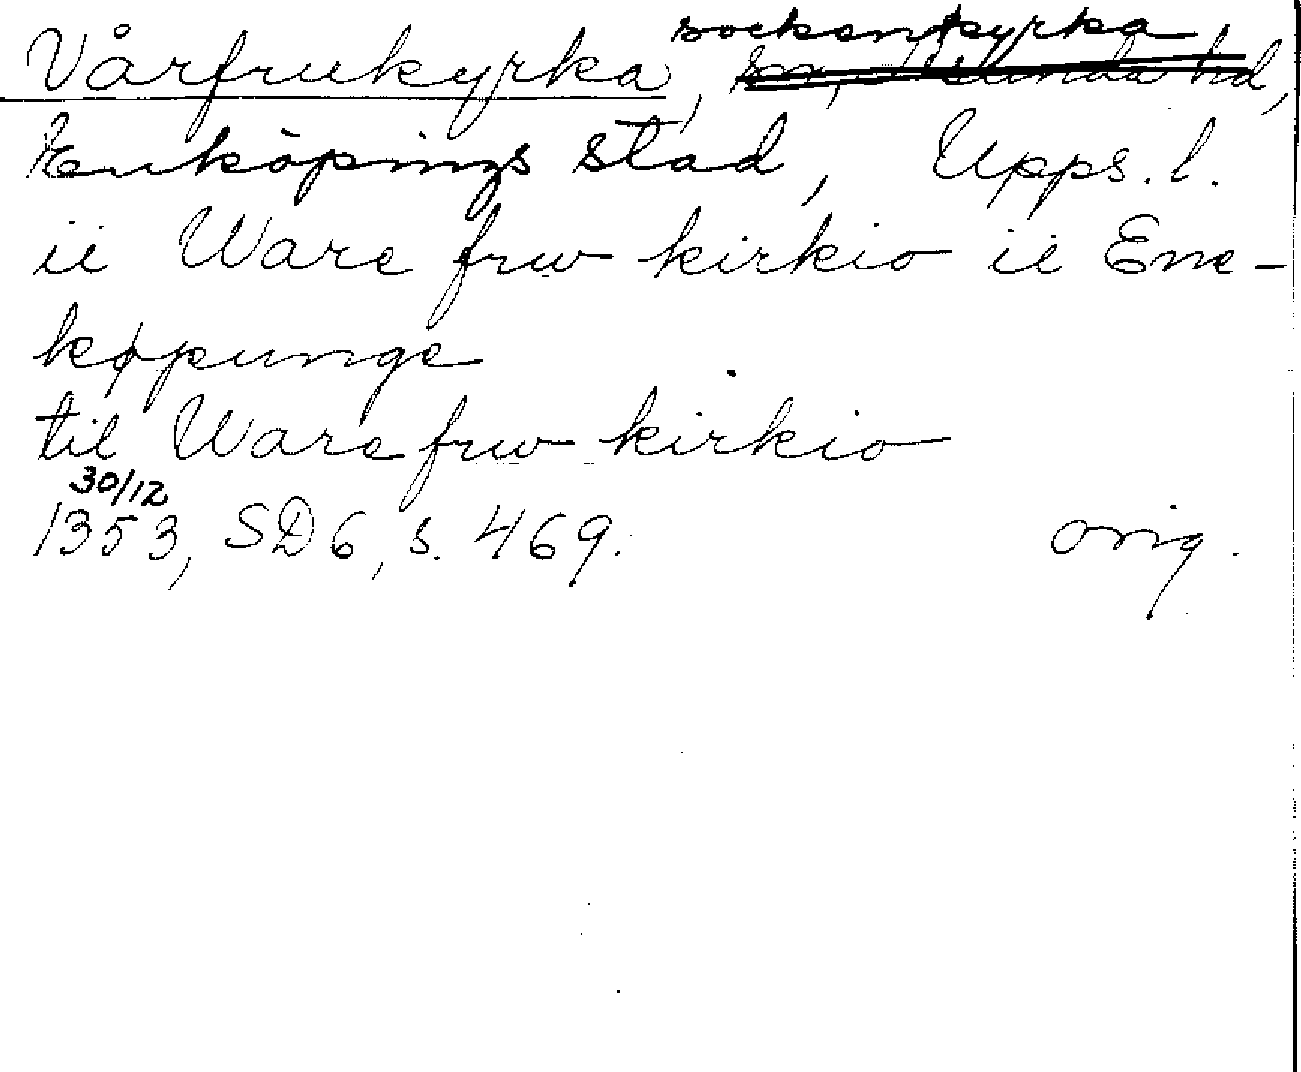 sockenkyrka
Vårfrukyrka, hd,
Enköpings stad, Upps. l.
ii Ware frw kirkio ii Ene-
køpunge
til Ware frw kirkio
30/12
1353, SD 6, s. 469. orig.